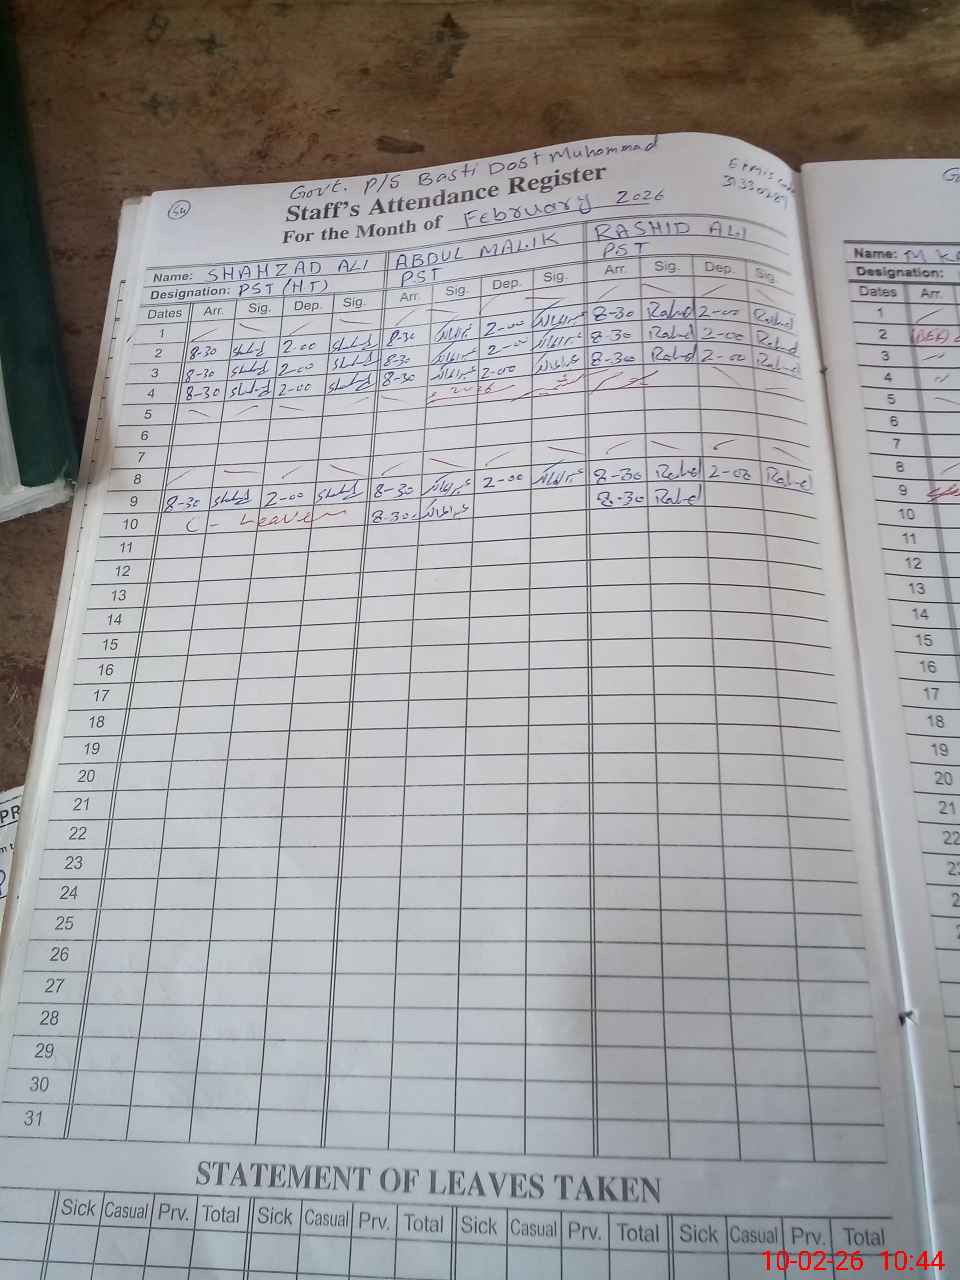 54
Govt. P/S Basti Dost Muhammad
Staff's Attendance Register
For the Month of February 2026
Name: SHAHZAD ALI ABDUL MALIK RASHID ALI
Designation: PST (HT) PST PST
Dates Arr. Sig. Dep. Sig. Arr. Sig. Dep. Sig. Arr. Sig. Dep. Sig.
1
2 8-30 2-00 8-30 2-00 8-30 2-00
3 8-30 2-00 8-30 2-00 8-30 2-00
4 8-30 2-00 8-30 2-00 8-30 2-00
5
6
7
8
9 8-30 2-00 8-30 2-00 8-30 2-00
10 C - Leave 8-30 8-30
11
12
13
14
15
16
17
18
19
20
21
22
23
24
25
26
27
28
29
30
31
STATEMENT OF LEAVES TAKEN
Sick Casual Prv. Total Sick Casual Prv. Total Sick Casual Prv. Total Sick Casual Prv. Total
Name:
Designation:
Dates Arr.
1
2
3
4
5
6
7
8
9
10
11
12
13
14
15
16
17
18
19
20
21
22
PR
10-02-26 10:44